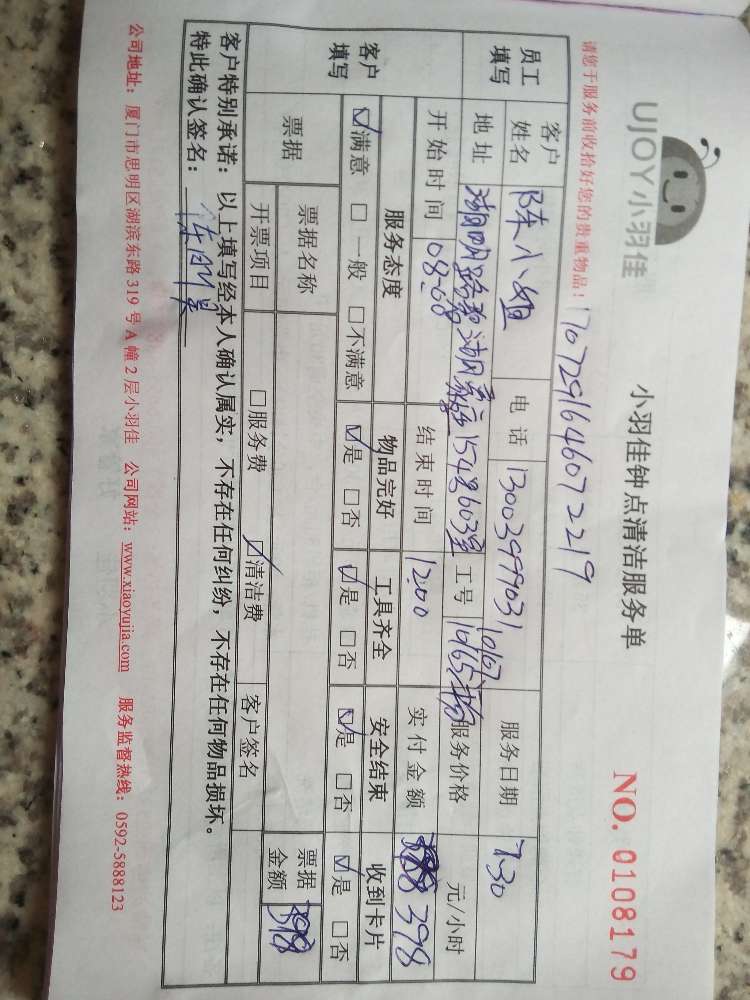 UJOY小羽佳
小羽佳钟点清洁服务单
NO. 0108179
请您于服务前收拾好您的贵重物品！
1707291646072219
员工填写 客户姓名 陈小姐 电话 13003999031 服务日期 7.30
地址 湖明路 1548603室 工号 10167 10165 服务价格 元/小时
开始时间 08-00 结束时间 12.00 实付金额 398
客户填写 服务态度 物品完好 工具齐全 安全结束 收到卡片
☑满意 □一般 □不满意 ☑是 □否 ☑是 □否 ☑是 □否 ☑是 □否
票据 票据名称 票据金额 398
开票项目 □服务费 ☑清洁费 客户签名
客户特别承诺：以上填写经本人确认属实，不存在任何纠纷，不存在任何物品损坏。
特此确认签名：
公司地址：厦门市思明区湖滨东路 319 号 A 幢 2 层小羽佳 公司网站：www.xiaoyujia.com 服务监督热线：0592-5888123